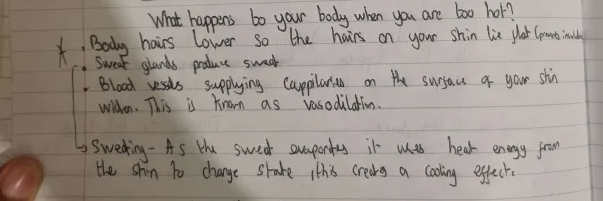 What happens to your body when you are too hot?
* • Body hairs lower so the hairs on your skin lie flat (prevents
• Sweat glands produce sweat
• Blood vessels supplying cappilaries on the surface of your skin
widen. This is known as vasodilation.
→ Sweating - As the sweat evaporates it uses heat energy from
the skin to change state, this creates a cooling effect.